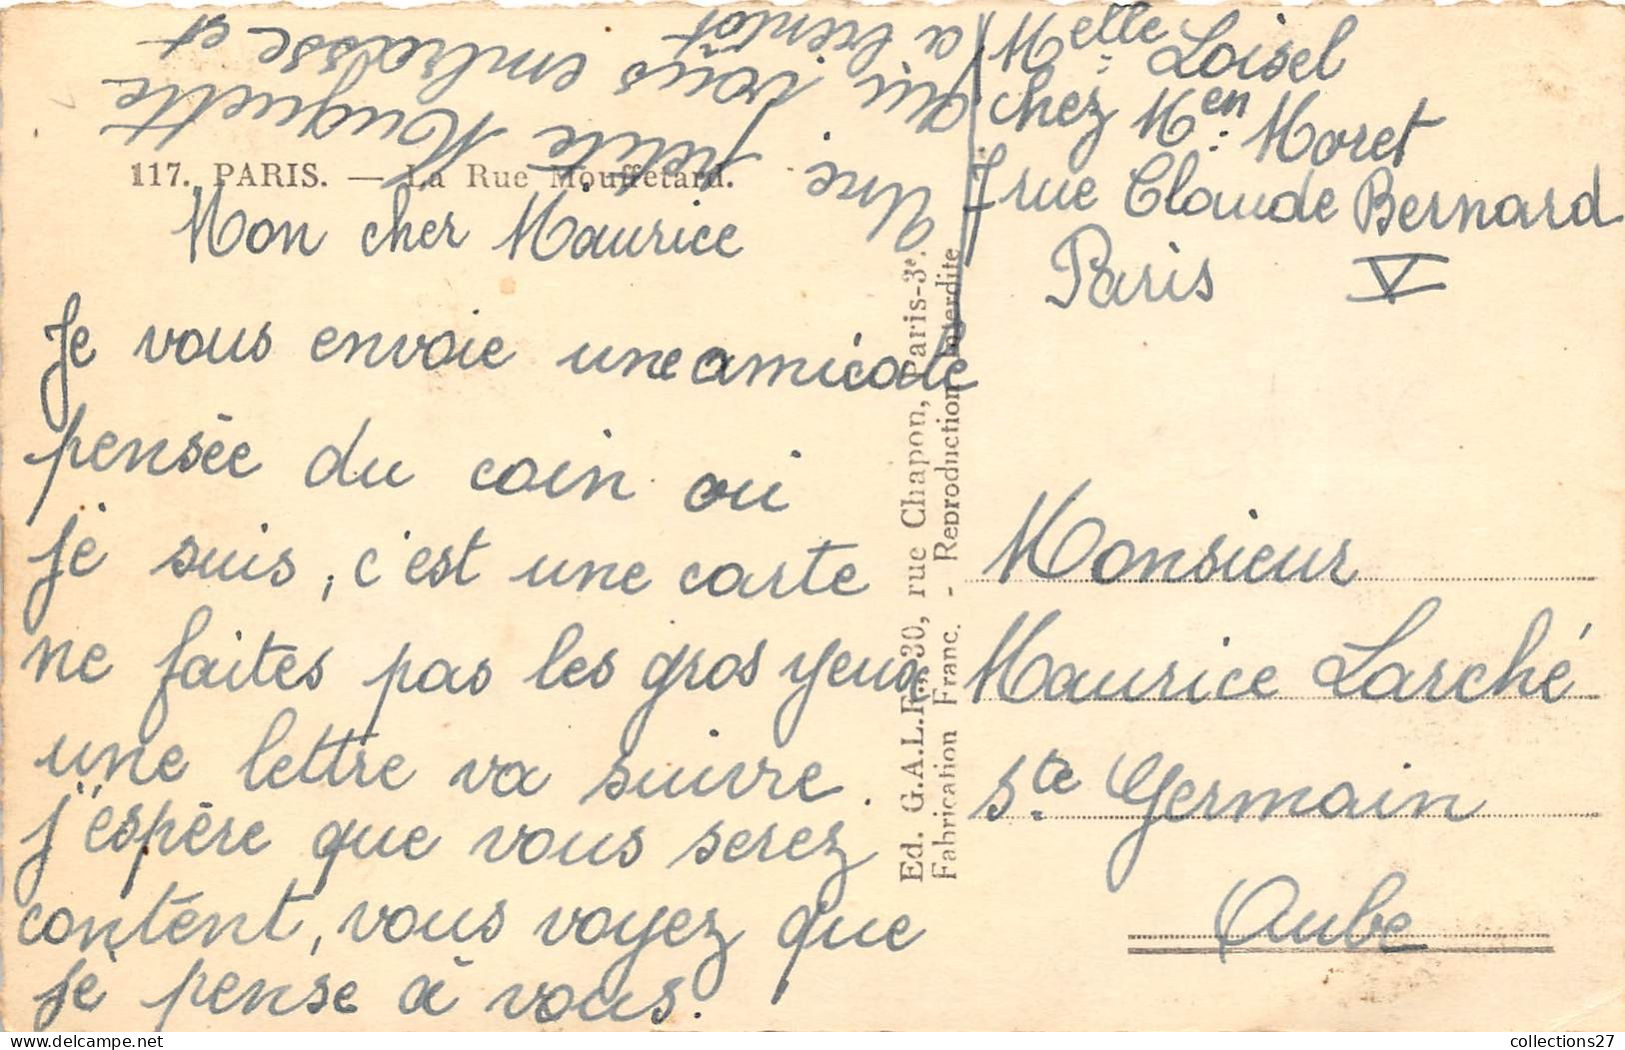 117. PARIS. — La Rue Mouffetard.
Mon cher Maurice
Je vous envoie une amicale
pensée du coin où
je suis, c'est une carte
ne faites pas les gros yeux
une lettre va suivre.
j'espère que vous serez
content, vous voyez que
je pense à vous.
Une petite Huguette
qui vous embrasse et
a bientôt
Melle Loisel
chez Men Moret
7 rue Claude Bernard
Paris V
Ed. G.A.L.F., 30, rue Chapon, Paris-3e.
Fabrication Franc. - Reproduction Interdite
Monsieur
Maurice Larché
Ste Germain
Aube
collections27